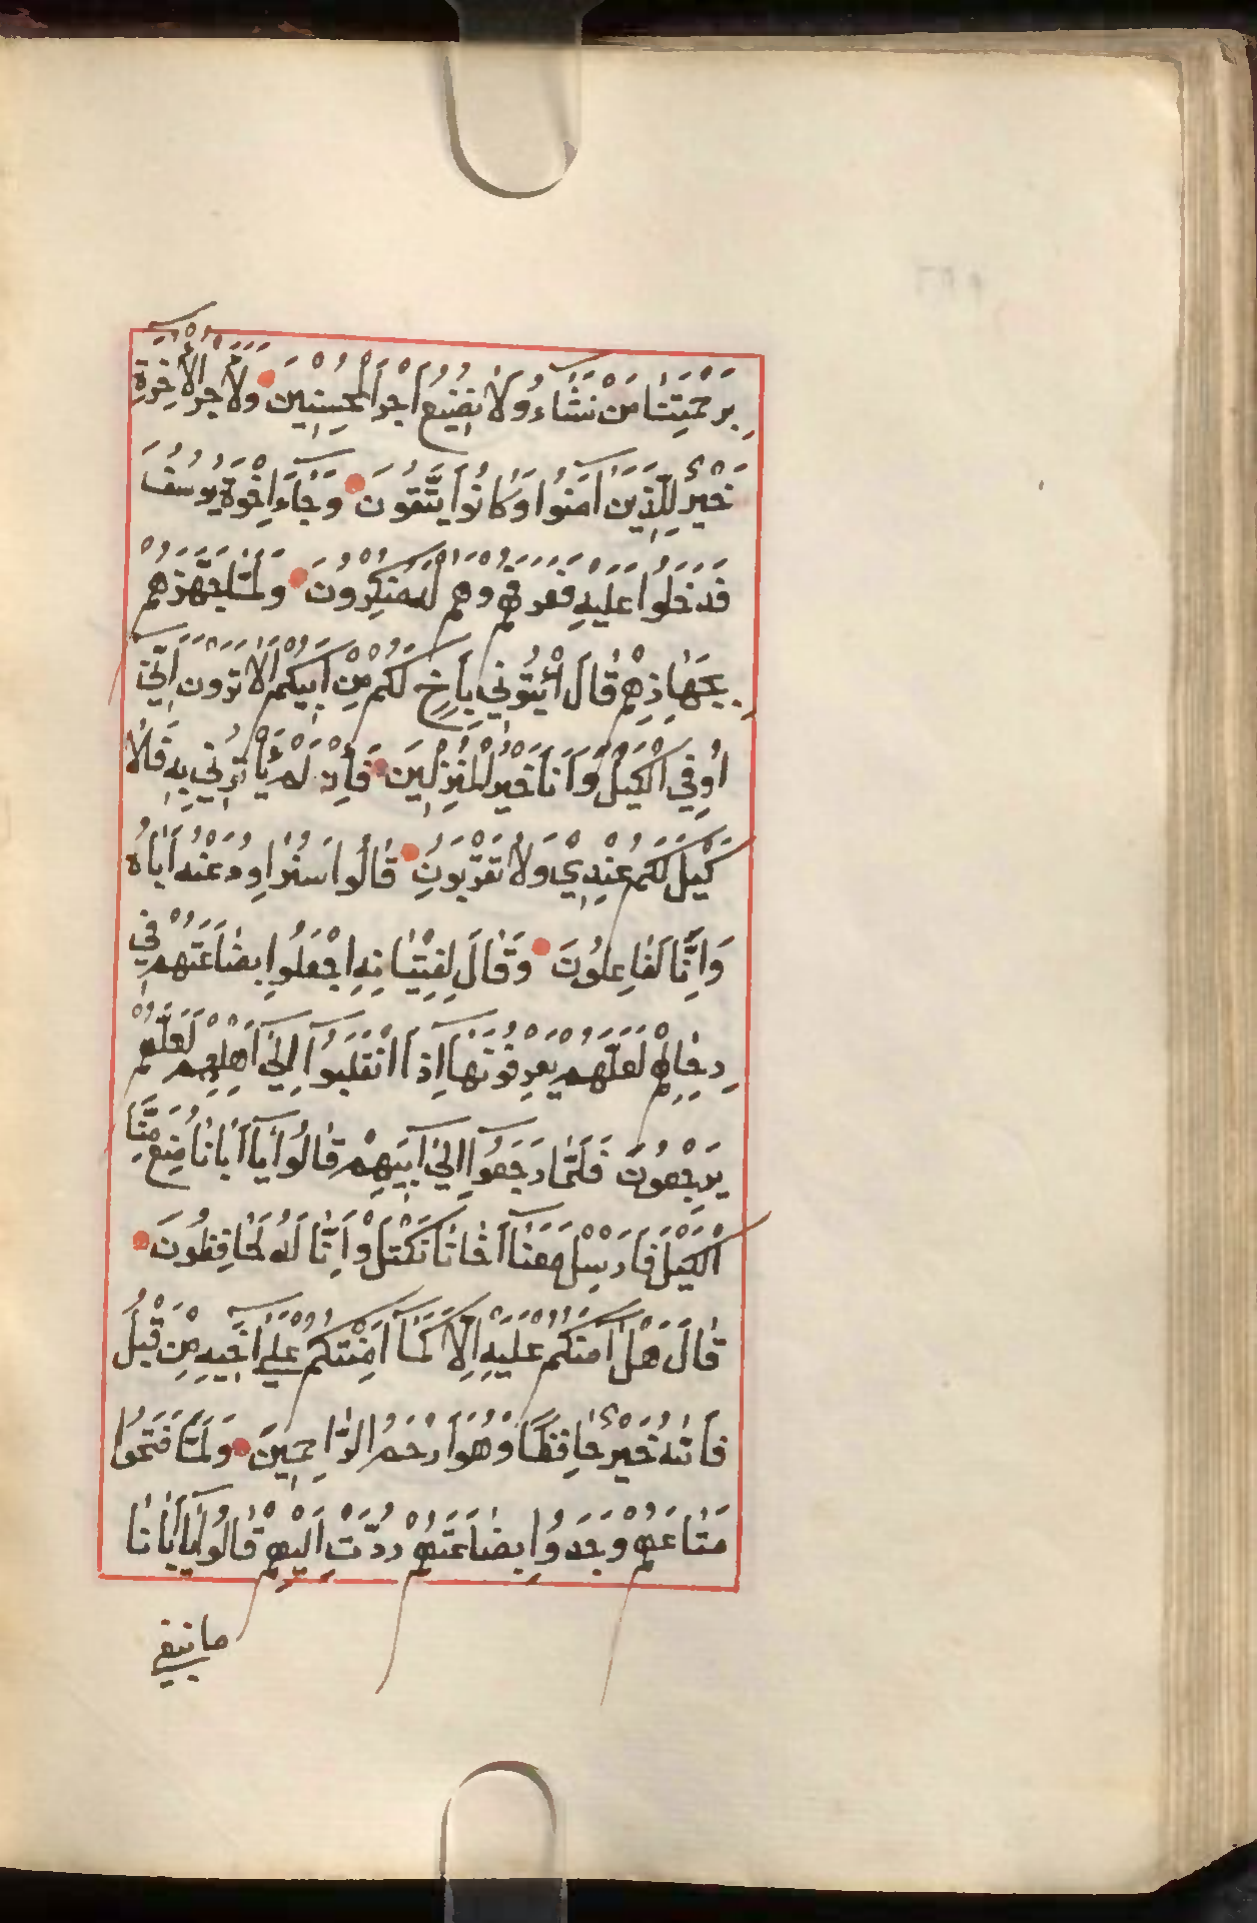 بِرَحْمَتِنَا مَنْ نَشَاءُ وَلَا نُضِيعُ أَجْرَ الْمُحْسِنِينَ وَلَأَجْرُ الْآخِرَةِ
خَيْرٌ لِلَّذِينَ آمَنُوا وَكَانُوا يَتَّقُونَ وَجَاءَ إِخْوَةُ يُوسُفَ
فَدَخَلُوا عَلَيْهِ فَعَرَفَهُمْ وَهُمْ لَهُ مُنْكِرُونَ وَلَمَّا جَهَّزَهُمْ
بِجَهَازِهِمْ قَالَ ائْتُونِي بِأَخٍ لَكُمْ مِنْ أَبِيكُمْ أَلَا تَرَوْنَ أَنِّي
أُوفِي الْكَيْلَ وَأَنَا خَيْرُ الْمُنْزِلِينَ فَإِنْ لَمْ تَأْتُونِي بِهِ فَلَا
كَيْلَ لَكُمْ عِنْدِي وَلَا تَقْرَبُونِ قَالُوا سَنُرَاوِدُ عَنْهُ أَبَاهُ
وَإِنَّا لَفَاعِلُونَ وَقَالَ لِفِتْيَانِهِ اجْعَلُوا بِضَاعَتَهُمْ فِي
رِحَالِهِمْ لَعَلَّهُمْ يَعْرِفُونَهَا إِذَا انْقَلَبُوا إِلَىٰ أَهْلِهِمْ لَعَلَّهُمْ
يَرْجِعُونَ فَلَمَّا رَجَعُوا إِلَىٰ أَبِيهِمْ قَالُوا يَا أَبَانَا مُنِعَ مِنَّا
الْكَيْلُ فَأَرْسِلْ مَعَنَا أَخَانَا نَكْتَلْ وَإِنَّا لَهُ لَحَافِظُونَ
قَالَ هَلْ آمَنُكُمْ عَلَيْهِ إِلَّا كَمَا أَمِنْتُكُمْ عَلَىٰ أَخِيهِ مِنْ قَبْلُ
فَاللَّهُ خَيْرٌ حَافِظًا وَهُوَ أَرْحَمُ الرَّاحِمِينَ وَلَمَّا فَتَحُوا
مَتَاعَهُمْ وَجَدُوا بِضَاعَتَهُمْ رُدَّتْ إِلَيْهِمْ قَالُوا يَا أَبَانَا
ما نبغي